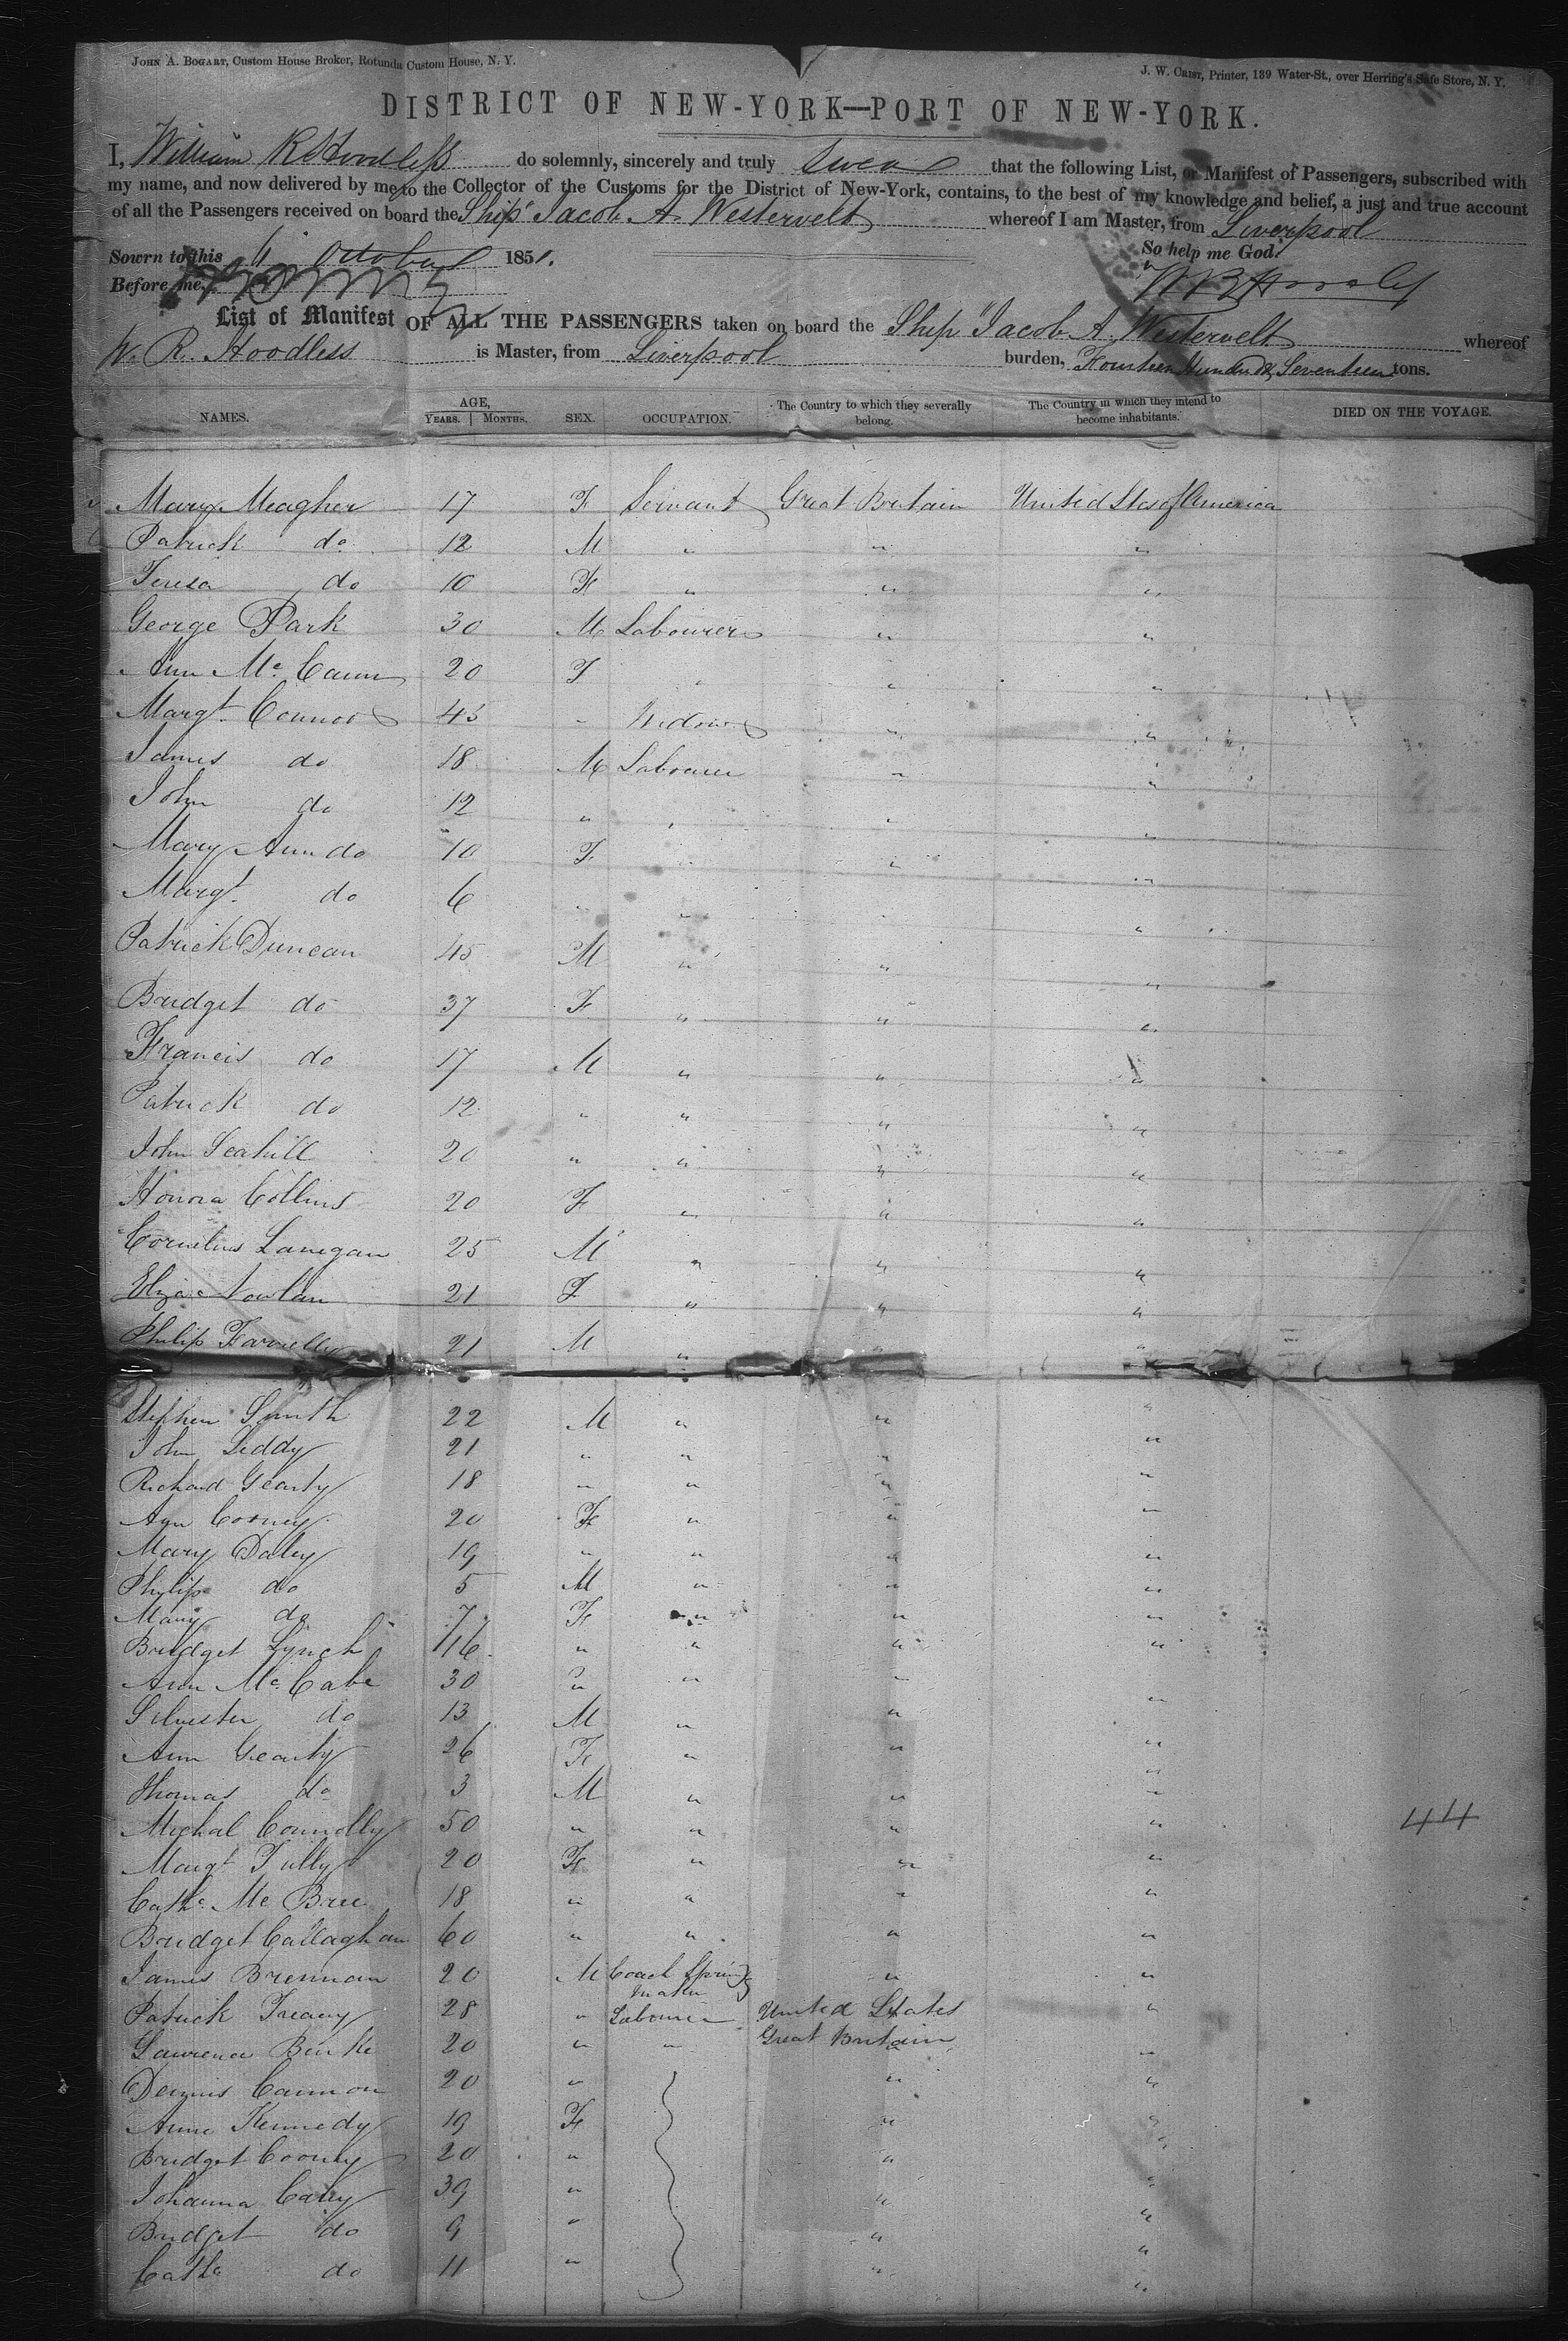 JOHN A. BOGART, Custom House Broker, Rotunda Custom House, N. Y.
J. W. CRIST, Printer, 189 Water-St., over Herring's Safe Store, N. Y.
DISTRICT OF NEW-YORK—PORT OF NEW-YORK.
I, William R Hoodless do solemnly, sincerely and truly swear that the following List, or Manifest of Passengers, subscribed with
my name, and now delivered by me to the Collector of the Customs for the District of New-York, contains, to the best of my knowledge and belief, a just and true account
of all the Passengers received on board the Ship "Jacob A. Westervelt whereof I am Master, from Liverpool
So help me God.
Sowrn to this 6 October 1851.
Before me,
List of Manifest OF ALL THE PASSENGERS taken on board the Ship "Jacob A. Westervelt whereof
W. R. Hoodless is Master, from Liverpool burden, Fourteen Hundred & Seventeen tons.
NAMES. AGE, YEARS. | MONTHS. SEX. OCCUPATION. The Country to which they severally belong. The Country in which they intend to become inhabitants. DIED ON THE VOYAGE.
Mary Meagher 17 F Servant Great Britain United Stes of America
Patrick do 12 M " " "
Teresa do 10 F " " "
George Park 30 M Labourer " "
Ann Mc Cann 20 F " " "
Margt. Connor 45 " Widow " "
James do 18 M Labourer " "
John do 12 " " " "
Mary Ann do 10 F " " "
Margt. do 6 " " " "
Patrick Duncan 45 M " " "
Bridget do 37 F " " "
Francis do 17 M " " "
Patrick do 12 " " " "
John Scahill 20 " " " "
Honora Collins 20 F " " "
Cornelius Lanegan 25 M " " "
Eliza Nowlan 21 F " " "
Philip Farrelly 21 M " " "
Stephen Smith 22 M " " "
John Leddy 21 " " " "
Richard Gearty 18 " " " "
Ann Cooney 20 F " " "
Mary Daley 19 " " " "
Philip do 5 M " " "
Mary do 7 F " " "
Bridget Lynch 16 " " " "
Ann Mc Cabe 30 " " " "
Silvester do 13 M " " "
Ann Gearty 26 F " " "
Thomas do 3 M " " "
Michal Connolly 50 " " " " 44
Margt Tully 20 F " " "
Cathe. Mc Bree 18 " " " "
Bridget Callaghan 60 " " " "
James Brennan 20 M Coach Spring maker " "
Patrick Treacy 28 " Labourer United States "
Lawrence Burke 20 " " Great Britain "
Dennis Cannon 20 " " "
Anne Kennedy 19 F " "
Bridget Cooney 20 " " "
Johanna Carey 39 " " "
Bridget do 9 " " "
Cathe do 11 " " "